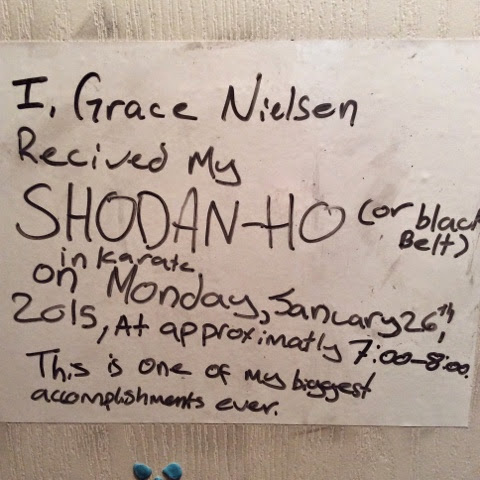 I, Grace Nielsen
Recived My
SHODAN-HO (or black
Belt)
in karate
on Monday, January 26th,
2015, At approximatly 7:00-8:00.
This is one of my biggest
accomplishments ever.